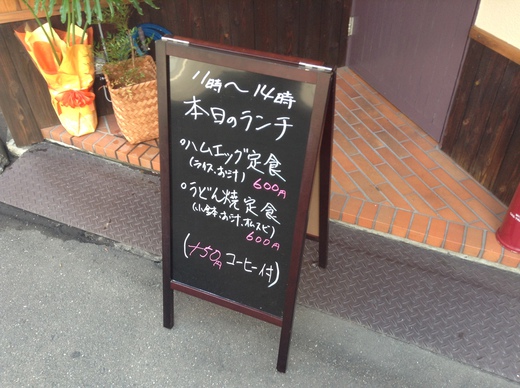 11時～14時
本日のランチ
ハムエッグ定食
(ライス、お汁) 600円
うどん焼定食
(小鉢、お汁、オムスビ)
600円
(+50円 コーヒー付)